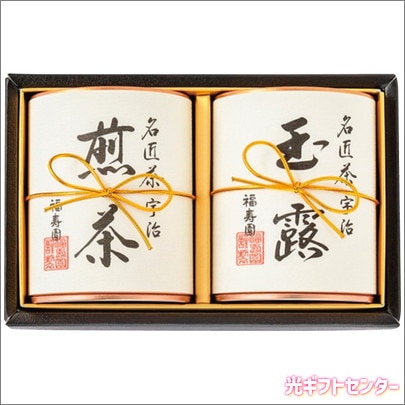 名匠茶宇治
煎茶
福寿園
名匠茶宇治
玉露
福寿園
光ギフトセンター